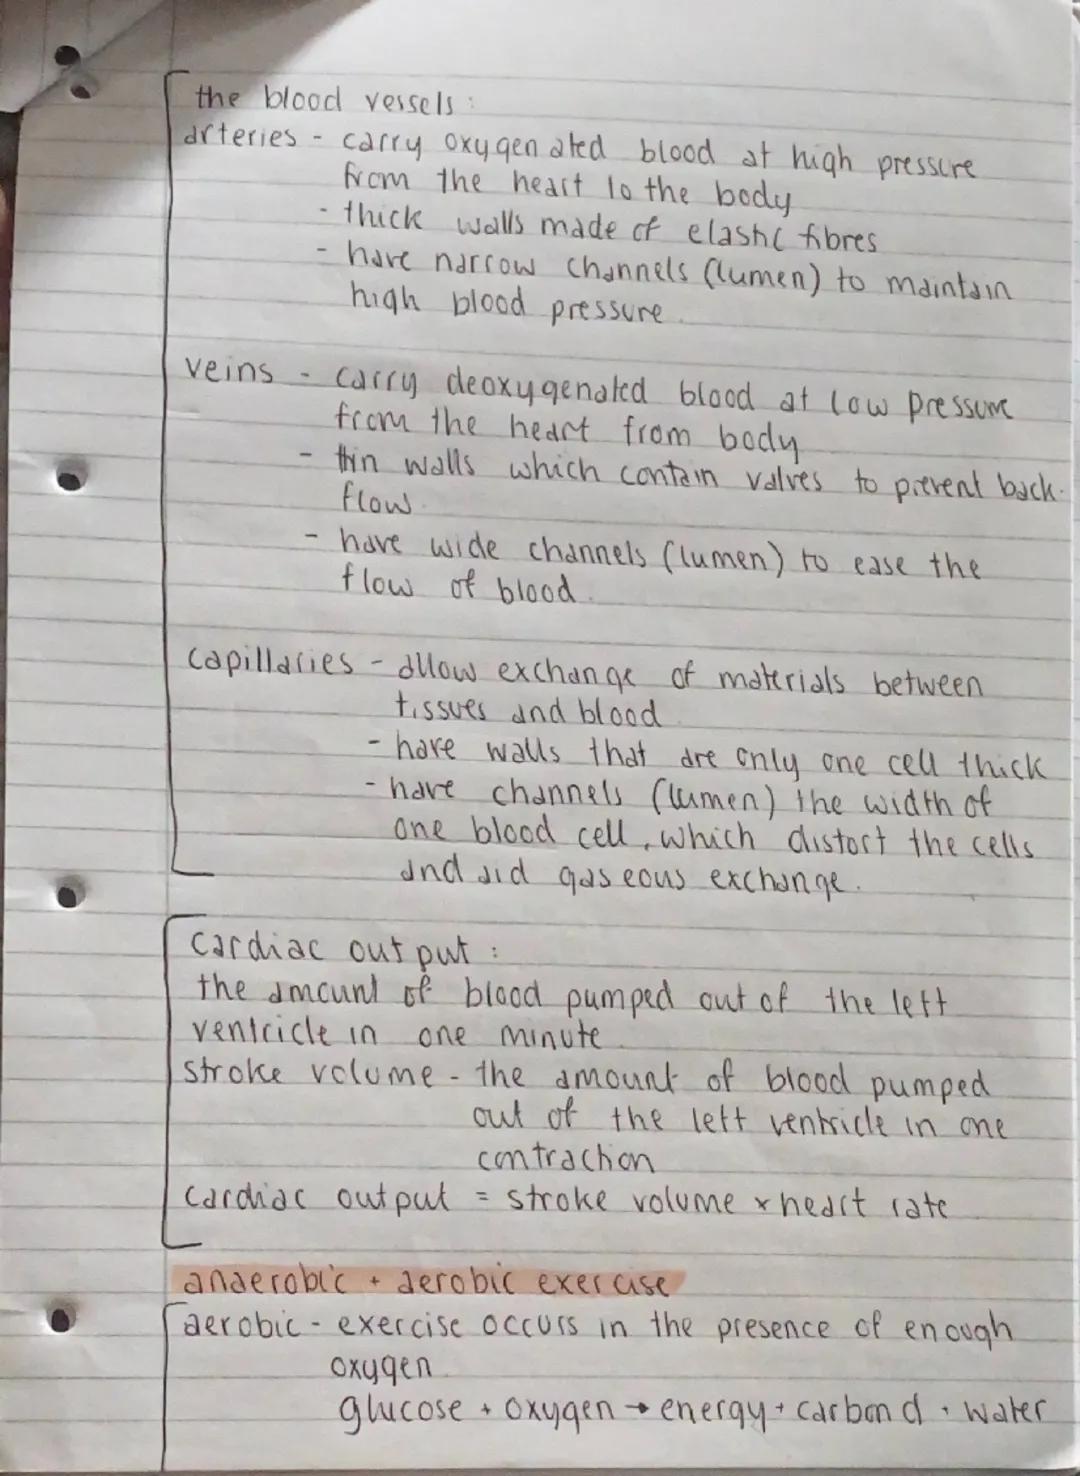 the blood vessels :
arteries - carry oxygenated blood at high pressure
from the heart to the body
- thick walls made of elastic fibres
- have narrow channels (lumen) to maintain
high blood pressure.
veins - carry deoxygenated blood at low pressure
from the heart from body
- thin walls which contain valves to prevent back-
flow.
- have wide channels (lumen) to ease the
flow of blood.
capillaries - allow exchange of materials between
tissues and blood
- have walls that are only one cell thick
- have channels (lumen) the width of
one blood cell, which distort the cells
and aid gaseous exchange.
cardiac output :
the amount of blood pumped out of the left
ventricle in one minute.
stroke volume - the amount of blood pumped
out of the left ventricle in one
contraction
cardiac output = stroke volume x heart rate
anaerobic + aerobic exercise
aerobic - exercise occurs in the presence of enough
oxygen.
glucose + oxygen → energy + carbon d + water